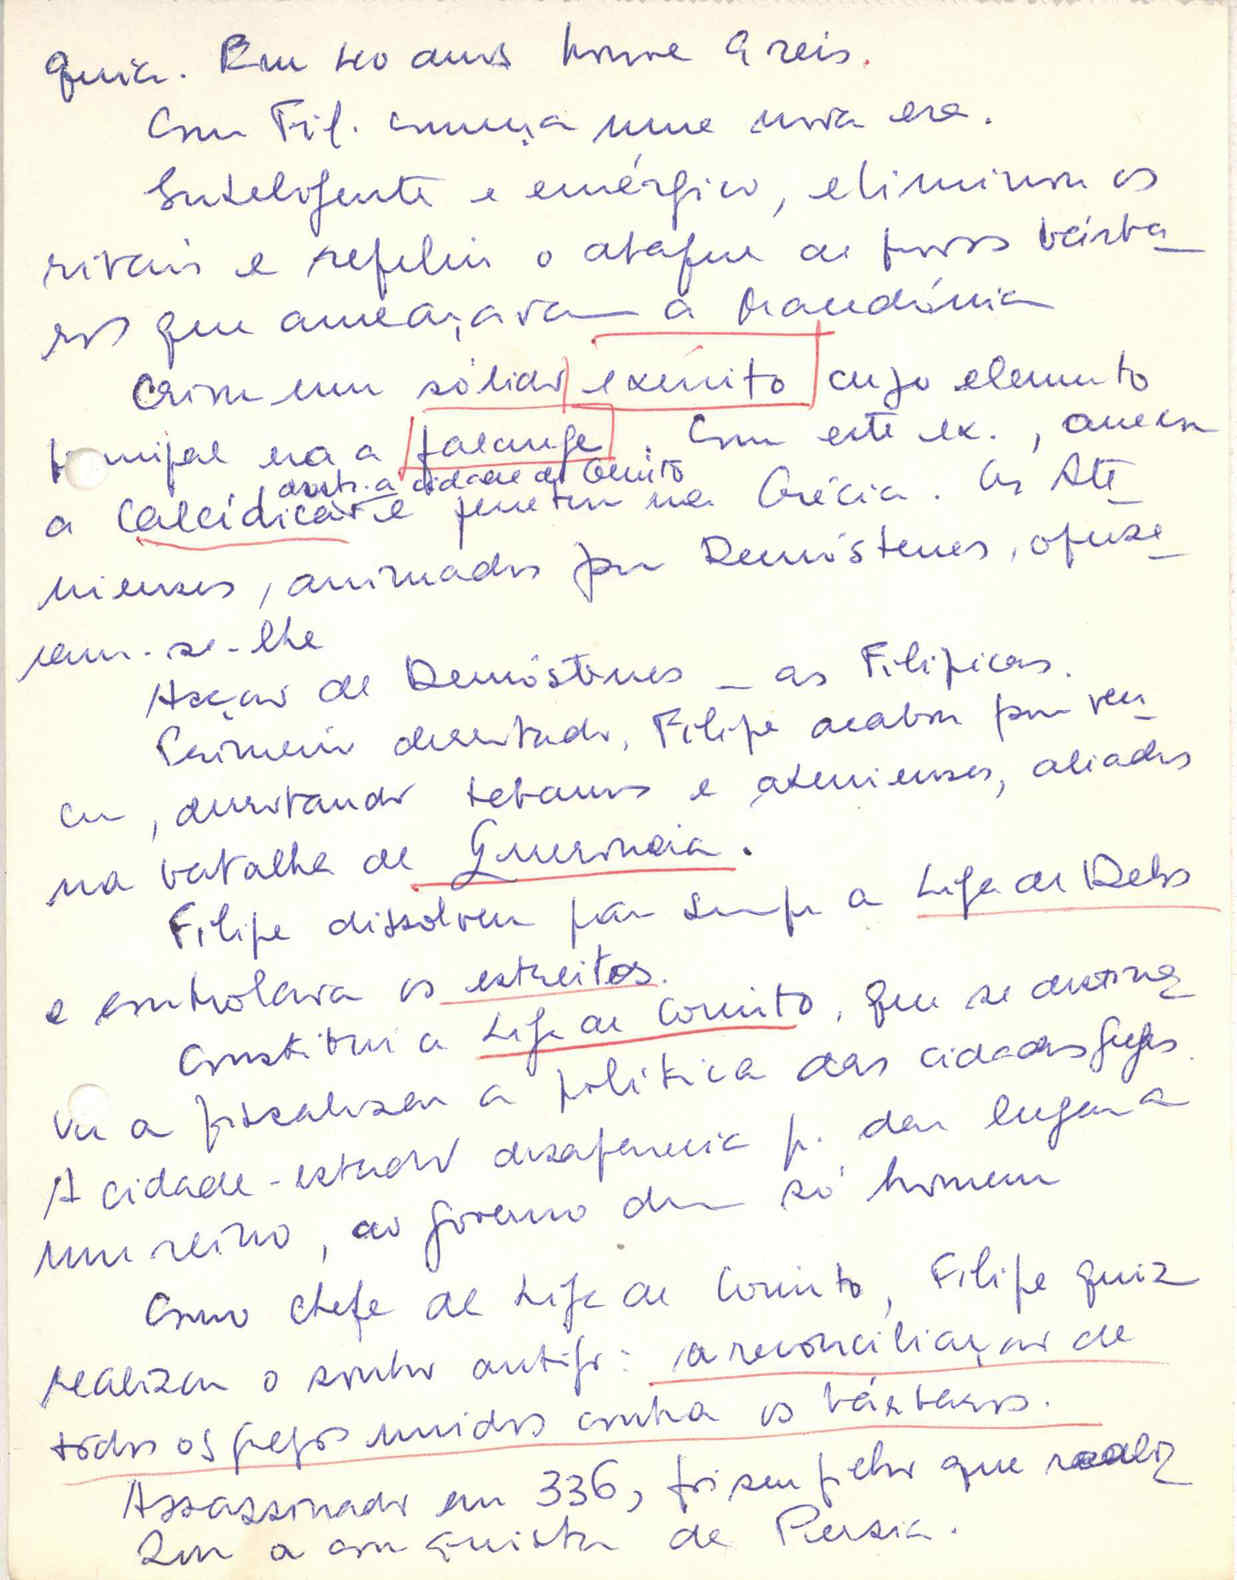 quia. Em 40 anos houve 9 reis.
Com Fil. começa uma nova era.
Inteligente e enérgico, eliminou os
rivais e repeliu o ataque de povos bárba_
ros que ameaçavam a Macedónia
Criou um sólido exército cujo elemento
principal era a falange. Com este ex., anexou
destr. a cidade de Olinto
a Calcídica e penetrou na Grécia. Os Ate_
nienses, animados por Demóstenes, opuse_
ram-se-lhe
Acção de Demóstenes _ as Filípicas.
Primeiro derrotado, Filipe acabou por ven_
cer, derrotando tebanos e atenienses, aliados
na batalha de Queroneia.
Filipe dissolveu para sempre a Liga de Delos
e controlava os estreitos.
Constitui a Liga de Corinto, que se destina
va a fiscalizar a política das cidades gregas.
A cidade-estado desaparecia p. dar lugar a
um reino, ao governo dum só homem
Como chefe de Liga de Corinto, Filipe quiz
realizar o sonho antigo: a reconciliação de
todos os gregos unidos contra os bárbaros.
Assassinado em 336, foi seu filho que realiz
zou a conquista da Persia.